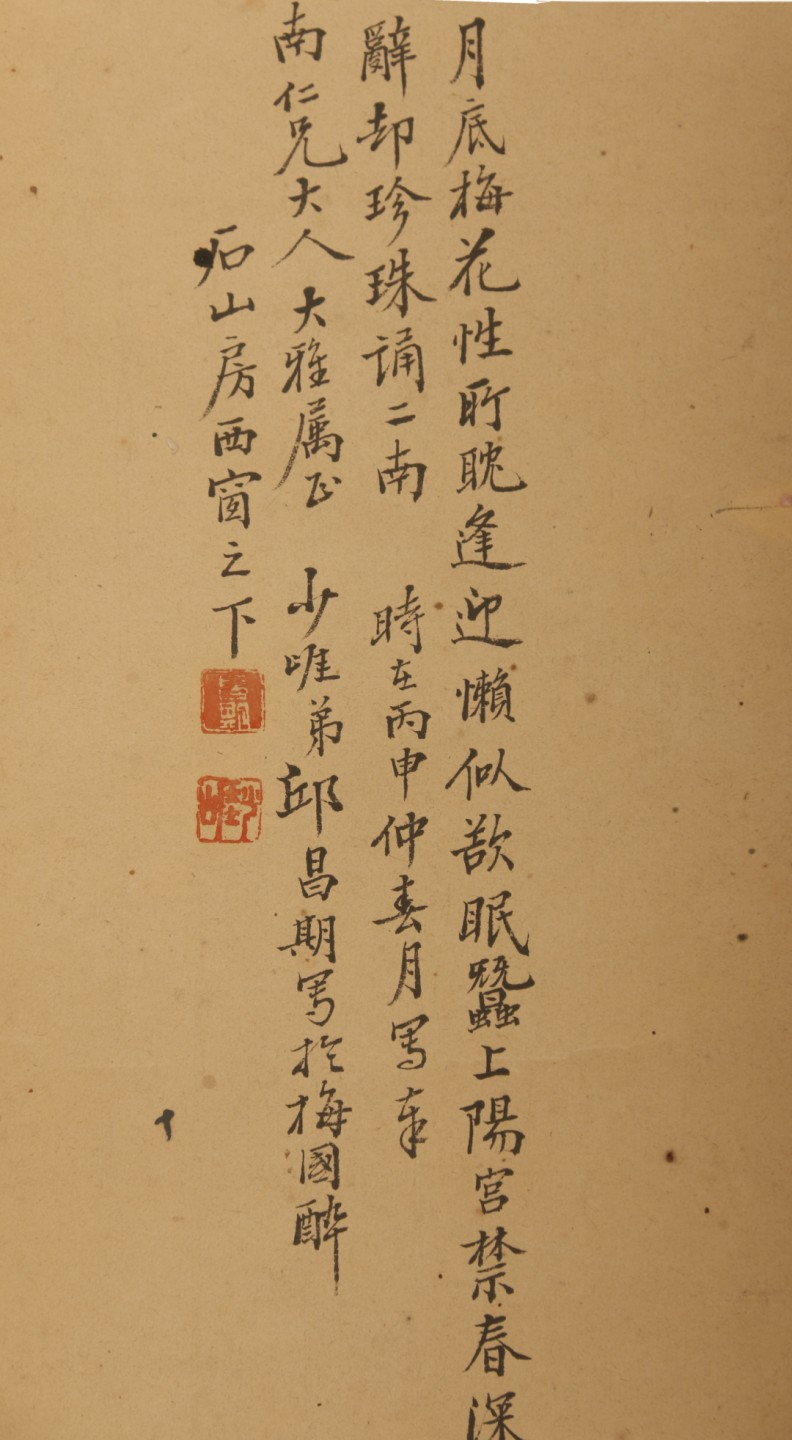 月底梅花性所耽逢迎懶似欲眠蠶上陽宮禁春深
辭却珍珠誦二南 時在丙申仲春月写奉
南仁兄大人大雅属正 少唯弟邱昌期写於梅國醉
石山房西窗之下